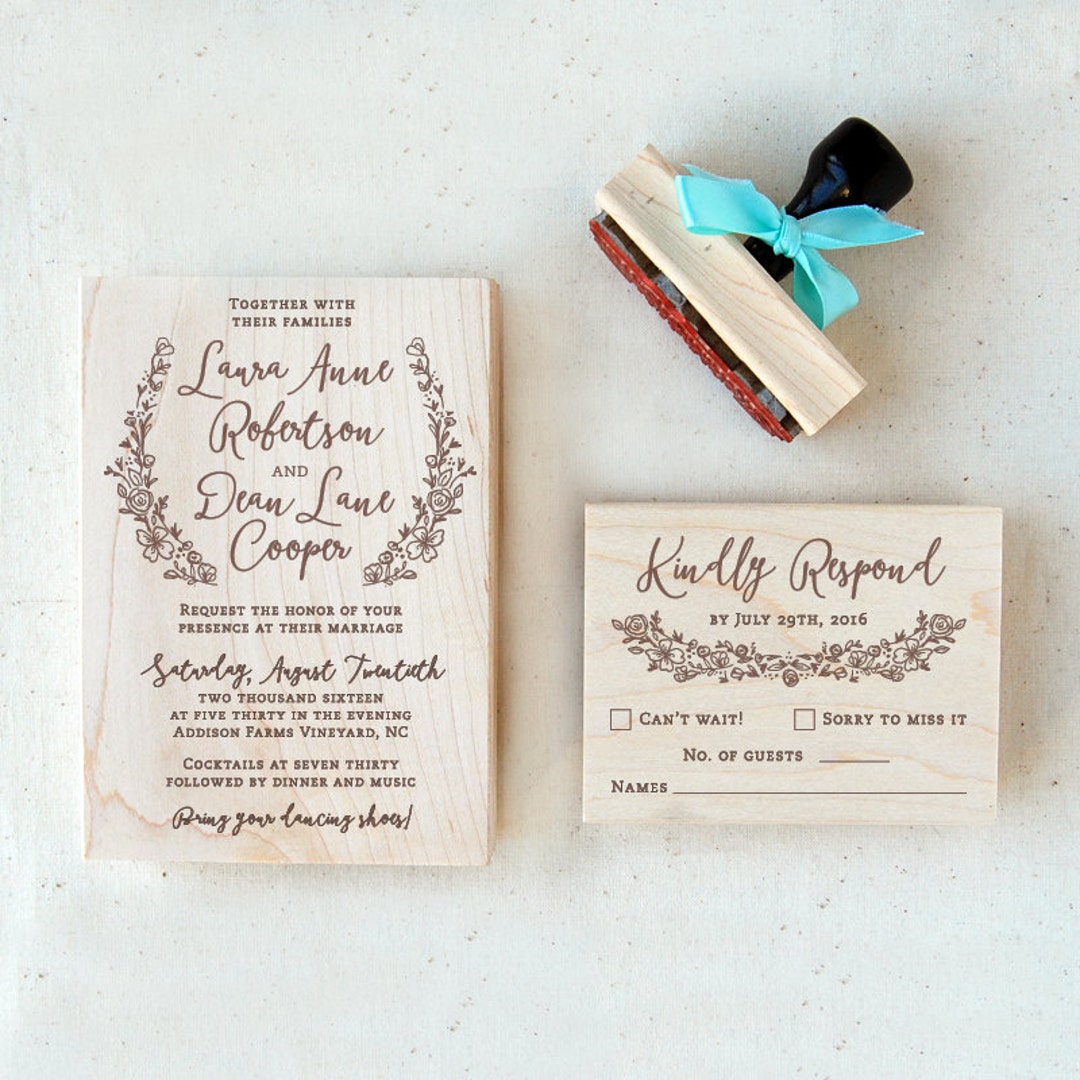 Together with
their families
Laura Anne
Robertson
and
Dean Lane
Cooper
Request the honor of your
presence at their marriage
Saturday, August Twentieth
two thousand sixteen
at five thirty in the evening
Addison Farms Vineyard, NC
Cocktails at seven thirty
followed by dinner and music
Bring your dancing shoes!
Kindly Respond
by July 29th, 2016
Can't wait! Sorry to miss it
No. of guests
Names